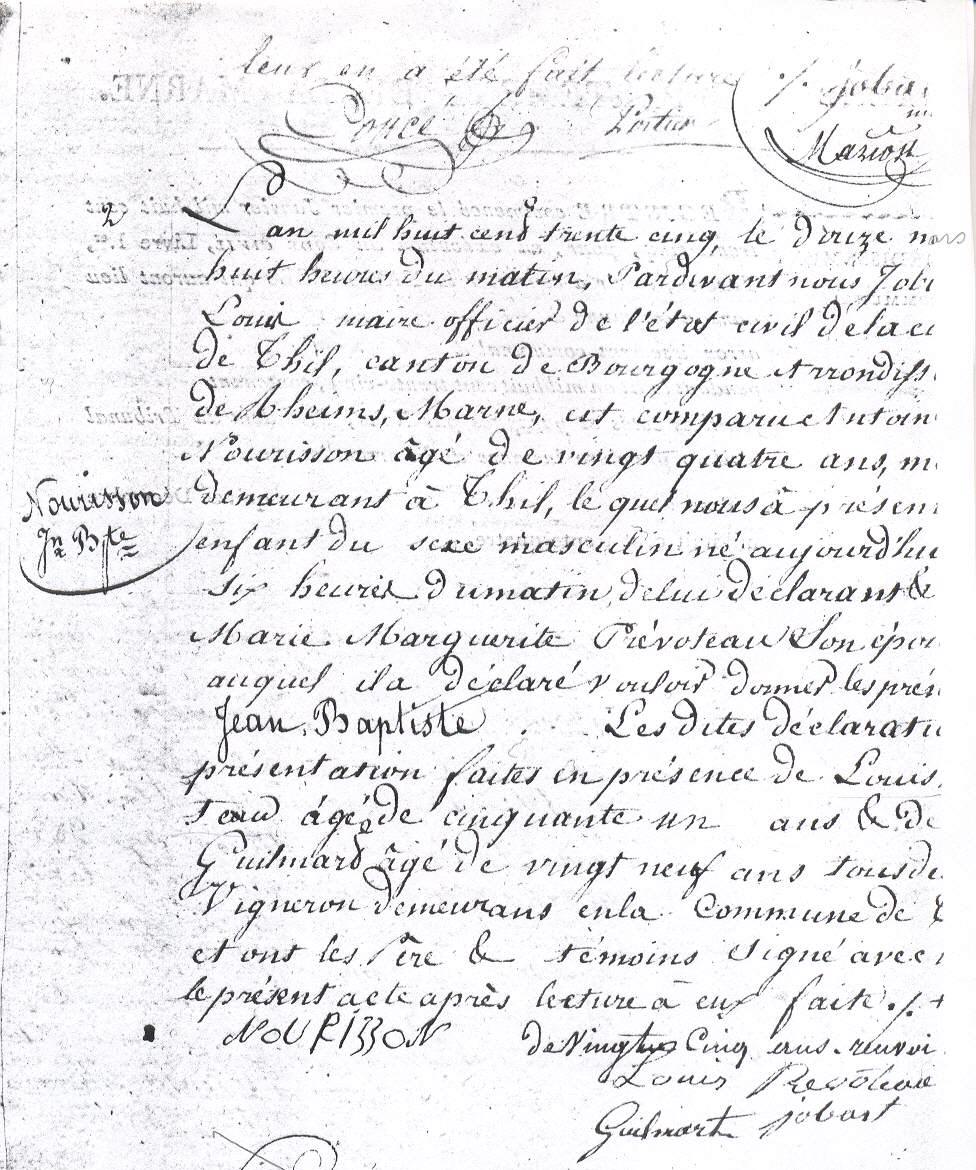 leur en a été fait lecture ./. Joba
Poncé Potier
Marion
2
L'an mil huit cent trente cinq, le douze mars
huit heures du matin, Pardevant nous Joba
Louis maire officier de l'état civil de la co
de Thil, canton de Bourgogne Arrondiss
de Rheims, Marne, est comparu Antoin
Nourisson âgé de vingt quatre ans, m
demeurant à Thil, le quel nous à présen
Nourisson
Jn Bte
enfant du sexe masculin né aujourd'hui
six heures du matin, de lui déclarant &
Marie Marguerite Prévoteau Son épou
auquel il a déclaré vouloir donner les prén
Jean Baptiste . Les dites déclarati
présentation faites en présence de Louis
teau âgé de cinquante un ans & de
Guilmard âgé de vingt neuf ans tous de
Vigneron demeurans en la Commune de T
et ont les Père & témoins signé avec n
le présent acte après lecture à eux faite ./. +
NOURISSON de Vingt Cinq ans. renvoi
Louis Prevoteau
Guilmart jobart